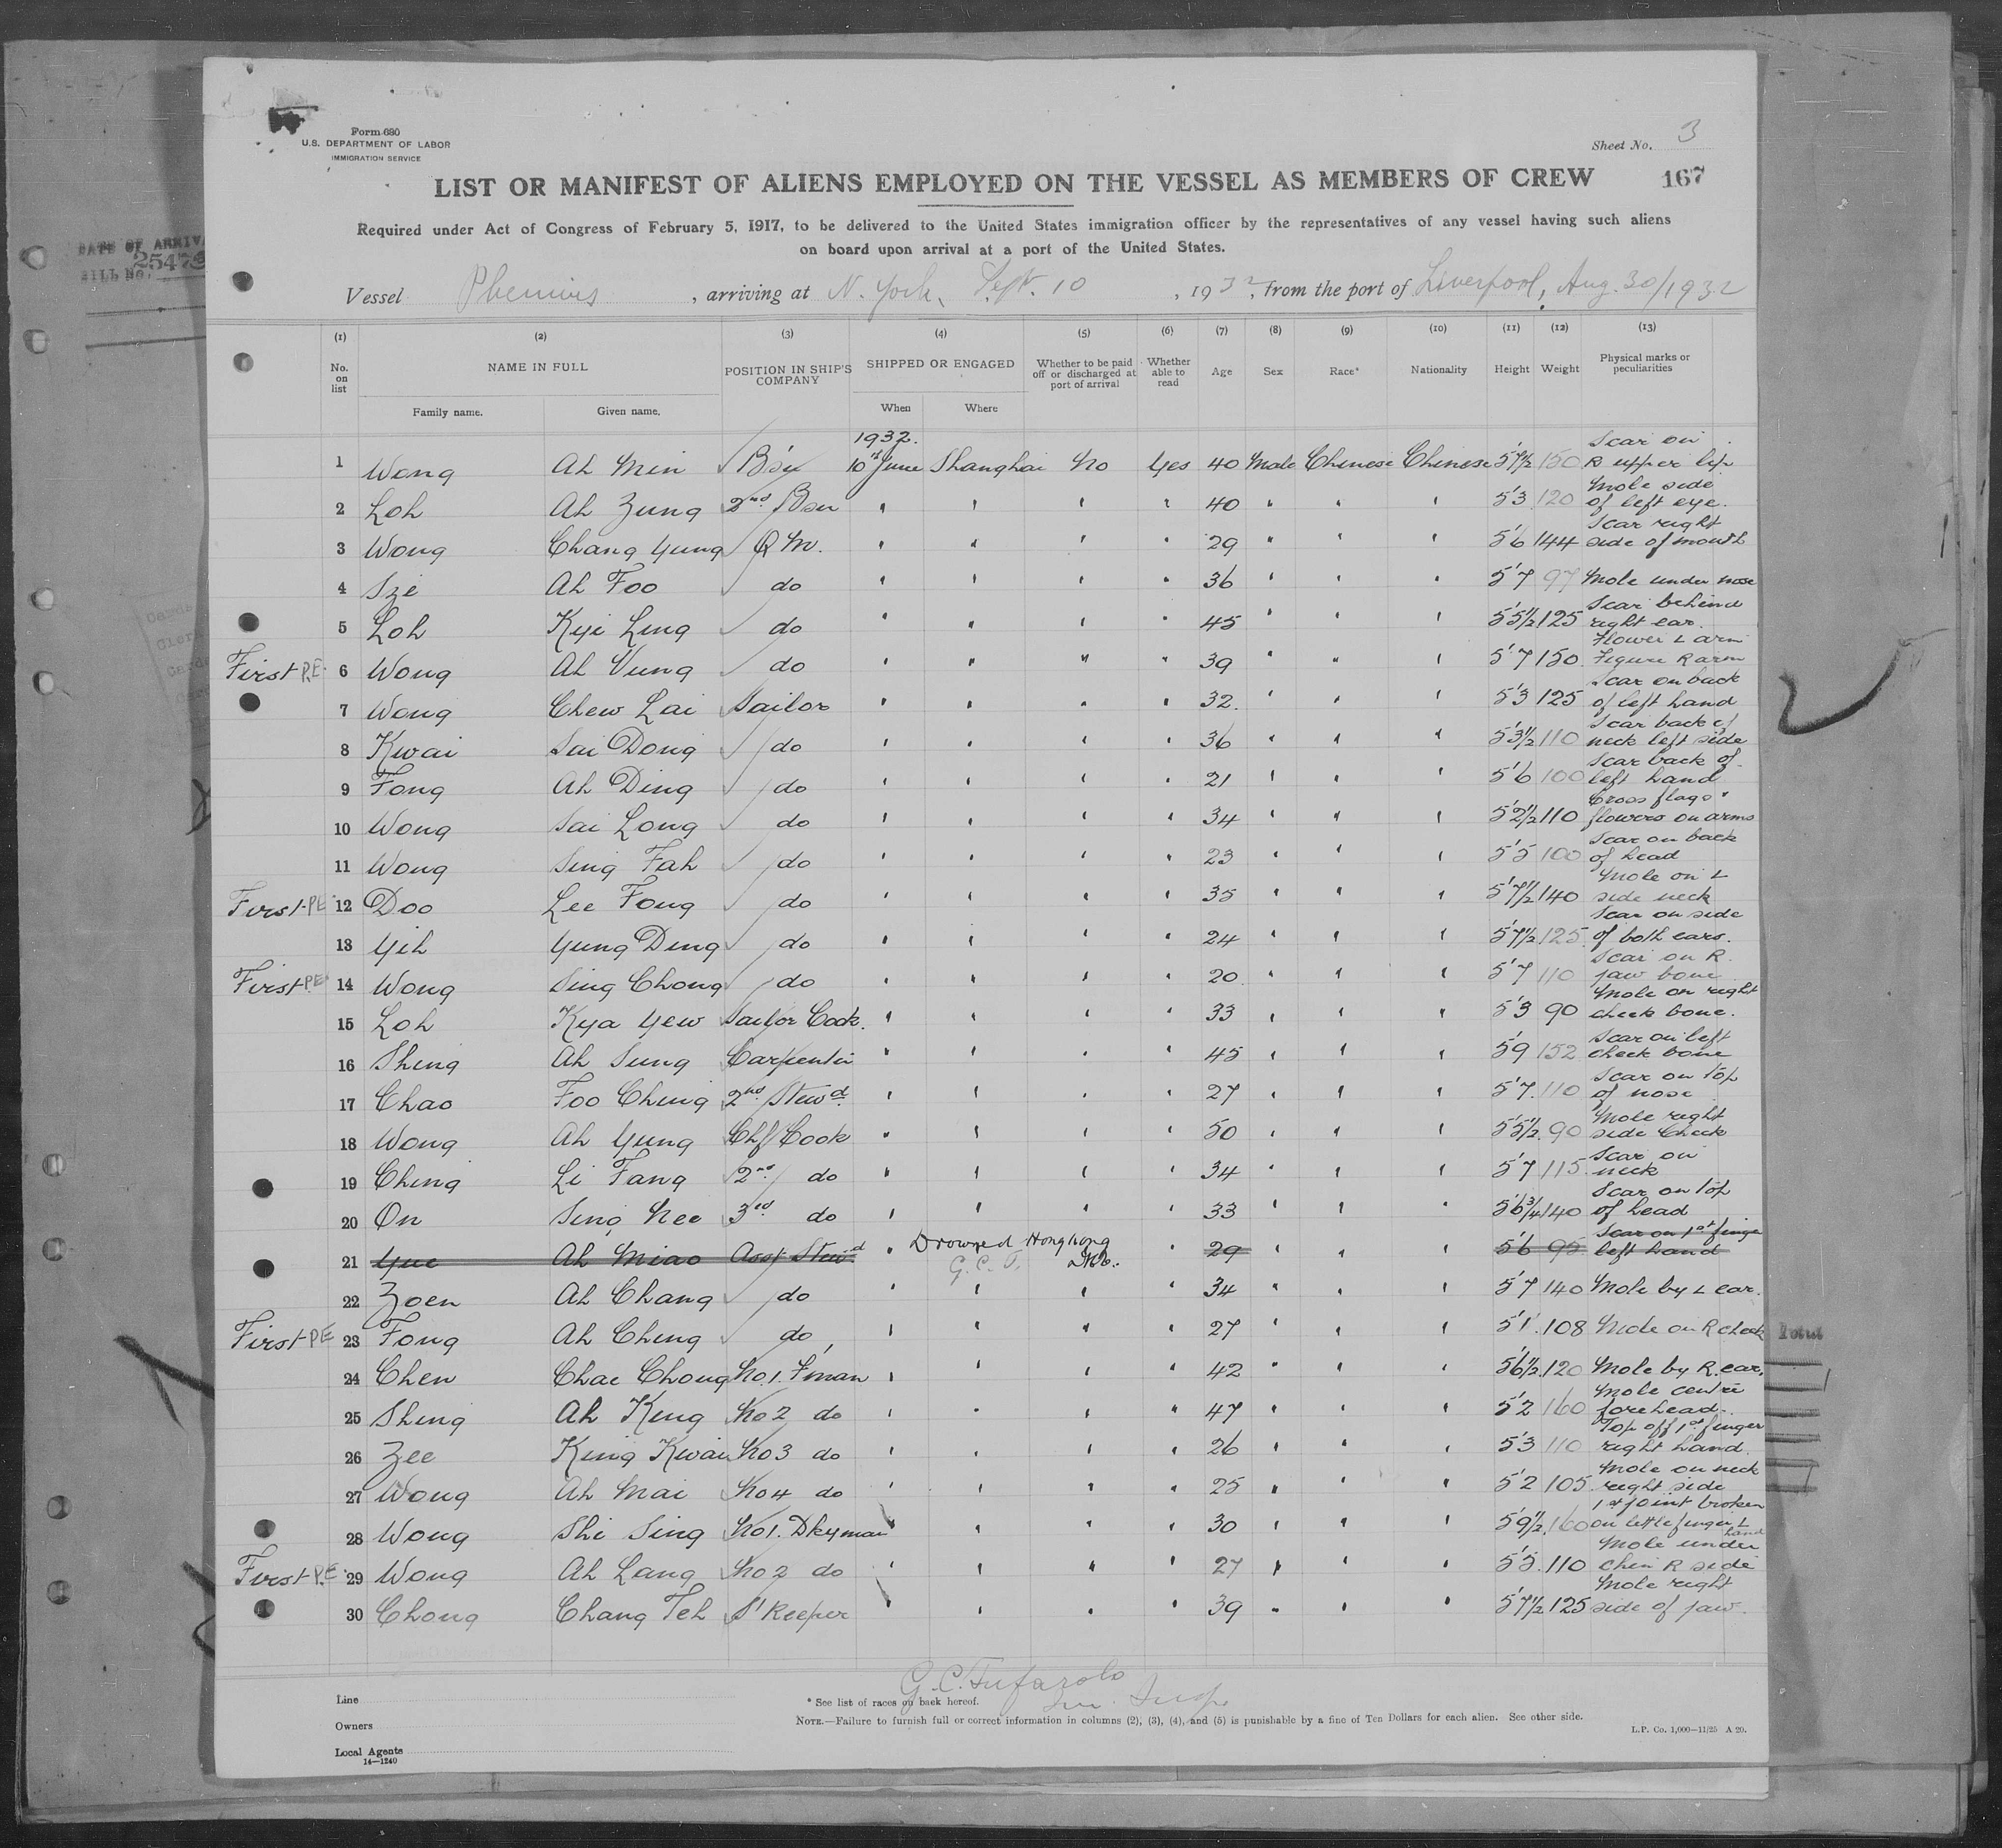 Form 680
U.S. DEPARTMENT OF LABOR
IMMIGRATION SERVICE
Sheet No. 3
LIST OR MANIFEST OF ALIENS EMPLOYED ON THE VESSEL AS MEMBERS OF CREW 167
Required under Act of Congress of February 5, 1917, to be delivered to the United States immigration officer by the representatives of any vessel having such aliens
on board upon arrival at a port of the United States.
DATE OF ARRIVA
BILL No. 25473
Vessel Phemius, arriving at N. York, Sept. 10, 1932, from the port of Liverpool, Aug. 30/1932
(1) (2) (3) (4) (5) (6) (7) (8) (9) (10) (11) (12) (13)
No. on list NAME IN FULL POSITION IN SHIP'S COMPANY SHIPPED OR ENGAGED Whether to be paid off or discharged at port of arrival Whether able to read Age Sex Race* Nationality Height Weight Physical marks or peculiarities
Family name. Given name. When Where
1932.
1 Wong Ah Min Bsn 10th June Shanghai No Yes 40 Male Chinese Chinese 5'7½ 150 Scar on R upper lip
2 Loh Ah Zung 2nd Bsn " " " " 40 " " " 5'3 120 Mole side of left eye.
3 Wong Chang Yung Q M. " " " " 29 " " " 5'6 144 Scar right side of mouth
4 Sze Ah Foo do " " " " 36 " " " 5'7 97 Mole under nose
5 Loh Kyi Ling do " " " " 45 " " " 5'5½ 125 Scar behind right ear.
First P.E. 6 Wong Ah Vung do " " " " 39 " " " 5'7 150 Flower L arm Figure R arm
7 Wong Chew Lai Sailor " " " " 32. " " " 5'3 125 Scar on back of left hand
8 Kwai Sai Dong do " " " " 36 " " " 5'3½ 110 Scar back of neck left side
9 Fong Ah Ding do " " " " 21 " " " 5'6 100 Scar back of left hand
10 Wong Sai Long do " " " " 34 " " " 5'2½ 110 Cross flags & flowers on arms
11 Wong Sing Fah do " " " " 23 " " " 5'5 100 Scar on back of head
First P.E. 12 Doo Lee Fong do " " " " 35 " " " 5'7½ 140 Mole on L side neck
13 Yih Yung Ding do " " " " 24 " " " 5'7½ 125 Scar on side of both ears.
First P.E. 14 Wong Sing Chong do " " " " 20 " " " 5'7 110 Scar on R. jaw bone
15 Loh Kya Yew Sailor Cook. " " " " 33 " " " 5'3 90 Mole on right cheek bone.
16 Sheng Ah Sung Carpenter " " " " 45 " " " 5'9 152 Scar on left cheek bone
17 Chao Foo Ching 2nd Stewd " " " " 27 " " " 5'7. 110 Scar on top of nose
18 Wong Ah Yung Chf Cook " " " " 50 " " " 5'5½ 90 Mole right side Cheek
19 Ching Li Fang 2nd do " " " " 34 " " " 5'7 115 Scar on neck
20 On Sing Nee 3rd do " " " " 33 " " " 5'6¾ 140 Scar on top of head
21 Yue Ah Miao Asst Stewd " Drowned Hong Kong G.C.T. " 29 " " " 5'6 95 Scar on 1st finger left hand
22 Zoen Ah Chang do " " " " 34 " " " 5'7 140 Mole by L ear.
First P.E. 23 Fong Ah Ching do " " " " 27 " " " 5'1 108 Mole on R cheek
24 Chen Chae Chong No.1. F'man " " " " 42 " " " 5'6½ 120 Mole by R. ear.
25 Sheng Ah King No 2 do " " " " 47 " " " 5'2 160 Mole centre forehead.
26 Zee King Kwai No 3 do " " " " 26 " " " 5'3 110 Top off 1st finger right hand.
27 Wong Ah Mai No 4 do " " " " 25 " " " 5'2 105 Mole on neck right side
28 Wong Shi Sing No 1. Dkyman " " " " 30 " " " 5'9½ 160 1st joint broken on little finger L hand
First P.E. 29 Wong Ah Lang No 2 do " " " " 27 " " " 5'5. 110 Mole under Chin R side
30 Chong Chang Teh S'Keeper " " " " 39 " " " 5'7½ 125 Mole right side of jaw.
Total
G.C. Tufarolo
Im. Insp.
Line
* See list of races on back hereof.
Owners
NOTE.—Failure to furnish full or correct information in columns (2), (3), (4), and (5) is punishable by a fine of Ten Dollars for each alien. See other side.
L.P. Co. 1,000—11/25 A 20.
Local Agents
14—1240